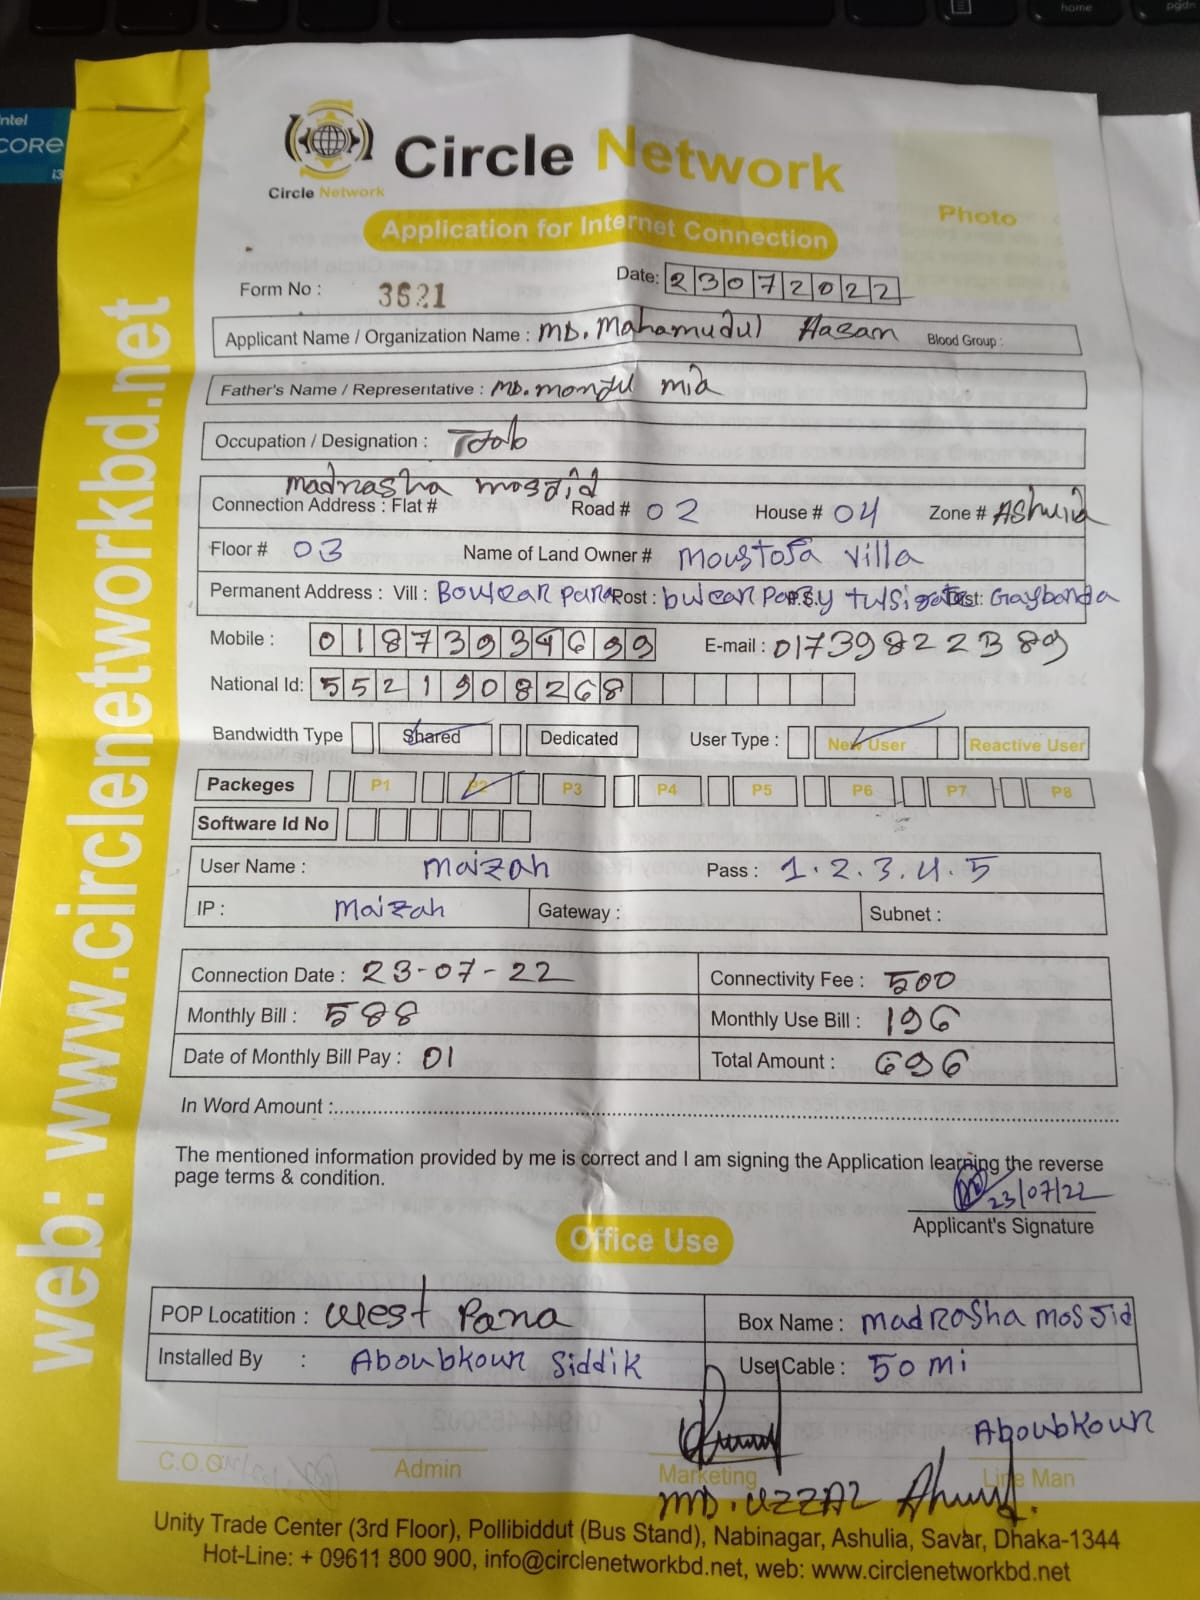 intel
CORE
i3
Circle Network
Circle Network
Photo
Application for Internet Connection
Form No : 3621
Date: 23072022
Applicant Name / Organization Name : MD. Mahamudul Hasan Blood Group :
Father's Name / Representative : MD. mondul mia
Occupation / Designation : Job
madrasha mosjid
Connection Address : Flat # Road # 02 House # 04 Zone # AShulia
Floor # 03 Name of Land Owner # Moustofa Villa
Permanent Address : Vill : Boulear para Post : P.S. : Dist: Gaybanda
Mobile : 01873934699 E-mail : 01739822389
National Id: 5521908268
Bandwidth Type Shared Dedicated User Type : New User Reactive User
Packeges P1 P2 P3 P4 P5 P6 P7 P8
Software Id No
User Name : maizah Pass : 1.2.3.4.5
IP : maizah Gateway : Subnet :
Connection Date : 23-07-22 Connectivity Fee : 500
Monthly Bill : 588 Monthly Use Bill : 196
Date of Monthly Bill Pay : 01 Total Amount : 696
In Word Amount :
The mentioned information provided by me is correct and I am signing the Application learning the reverse
page terms & condition.
23/07/22
Applicant's Signature
Office Use
POP Locatition : West Para Box Name : madrosha mosjid
Installed By : Aboubkour Siddik Use Cable : 50 mi
Aboubkour
C.O.O Admin Marketing Line Man
MD. UZZAL Ahmed.
Unity Trade Center (3rd Floor), Pollibiddut (Bus Stand), Nabinagar, Ashulia, Savar, Dhaka-1344
Hot-Line: + 09611 800 900, info@circlenetworkbd.net, web: www.circlenetworkbd.net
web: www.circlenetworkbd.net
home
pgdn